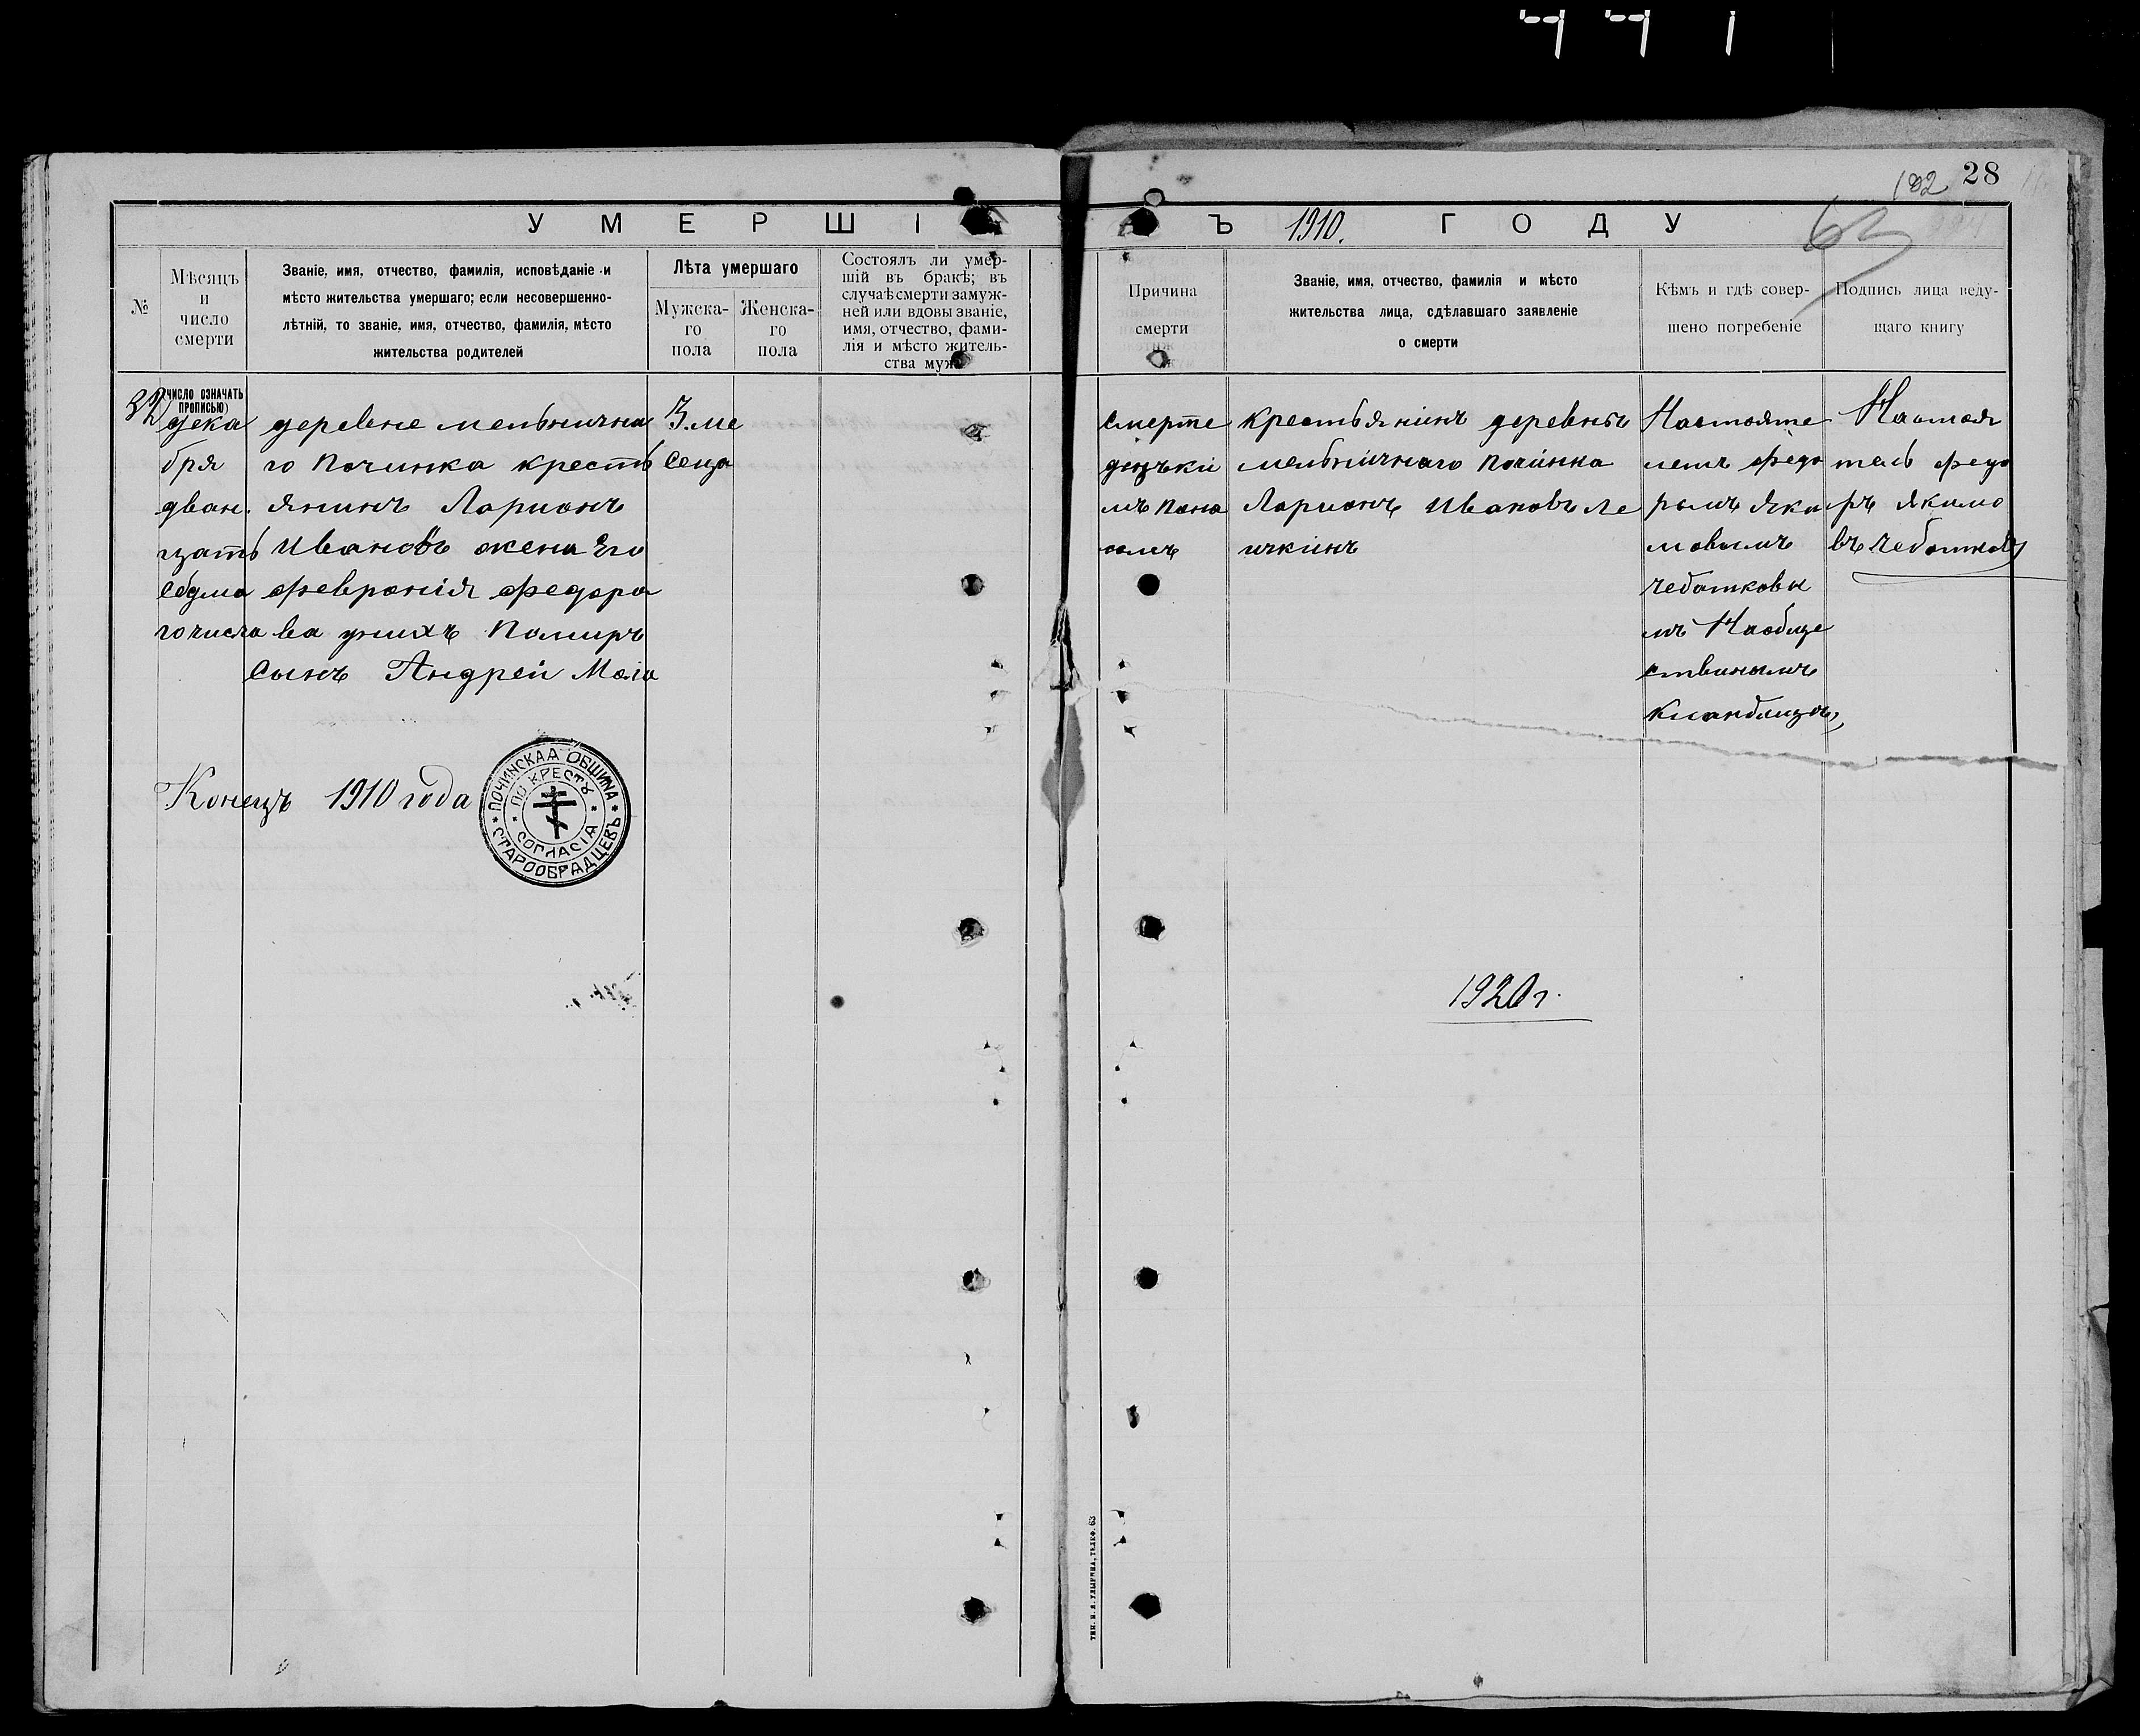 182 28
63
УМЕРШІ Ъ 1910. ГОДУ
№
Мѣсяцъ
и
число
смерти
Званіе, имя, отчество, фамилія, исповѣданіе и
мѣсто жительства умершаго; если несовершенно-
лѣтній, то званіе, имя, отчество, фамилія, мѣсто
жительства родителей
Лѣта умершаго
Мужска-
го
пола
Женска-
го
пола
Состоялъ ли умер-
шій въ бракѣ; въ
случаѣ смерти замуж-
ней или вдовы званіе,
имя, отчество, фами-
лія и мѣсто житель-
ства мужа
Причина
смерти
Званіе, имя, отчество, фамилія и мѣсто
жительства лица, сдѣлавшаго заявленіе
о смерти
Кѣмъ и гдѣ совер-
шено погребеніе
Подпись лица веду-
щаго книгу
32
(число означать
прописью)
дека
бря
дван.
цать
седма
го числа
деревне мельнична
го Починка кресть
янинъ Ларионъ
Ивановъ жена Его
Феврония Федоро
ва унихъ Помиръ
сынъ Андрей
3. ме
сеца
смерте
Крестьянинъ деревнѣ
мельничнаго Починка
Ларионъ Ивановъ Ле
ичкинъ
Настояте
лемъ Федо
ромъ Яки
мовымъ
Чеботковы
мъ Наобще
ственомъ
Кладбище
Настоя
тель Федо
ръ Якимо
въ Чеботковъ
Конецъ 1910 года
ПОЧИНСКАЯ ОБЩИНА
СТАРООБРЯДЦЕВЪ
ПО КРЕСТУ
СОГЛАСІЯ
1920 г.